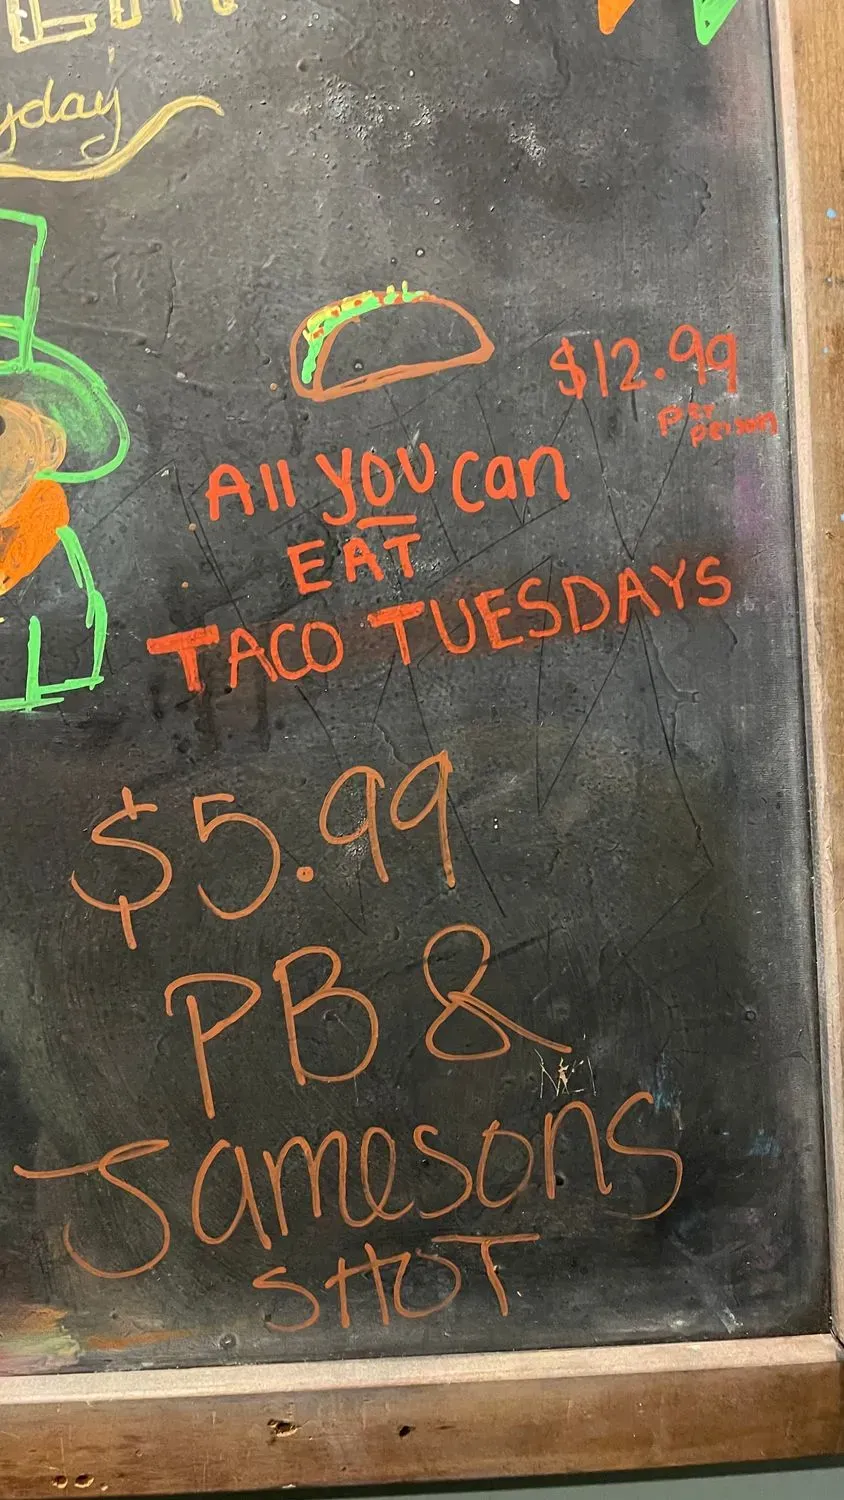 $12.99
per
person
All YOU Can
EAT
TACO TUESDAYS
$5.99
PB &
Jamesons
SHOT